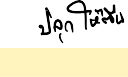 ปลุก ให้ตื่น